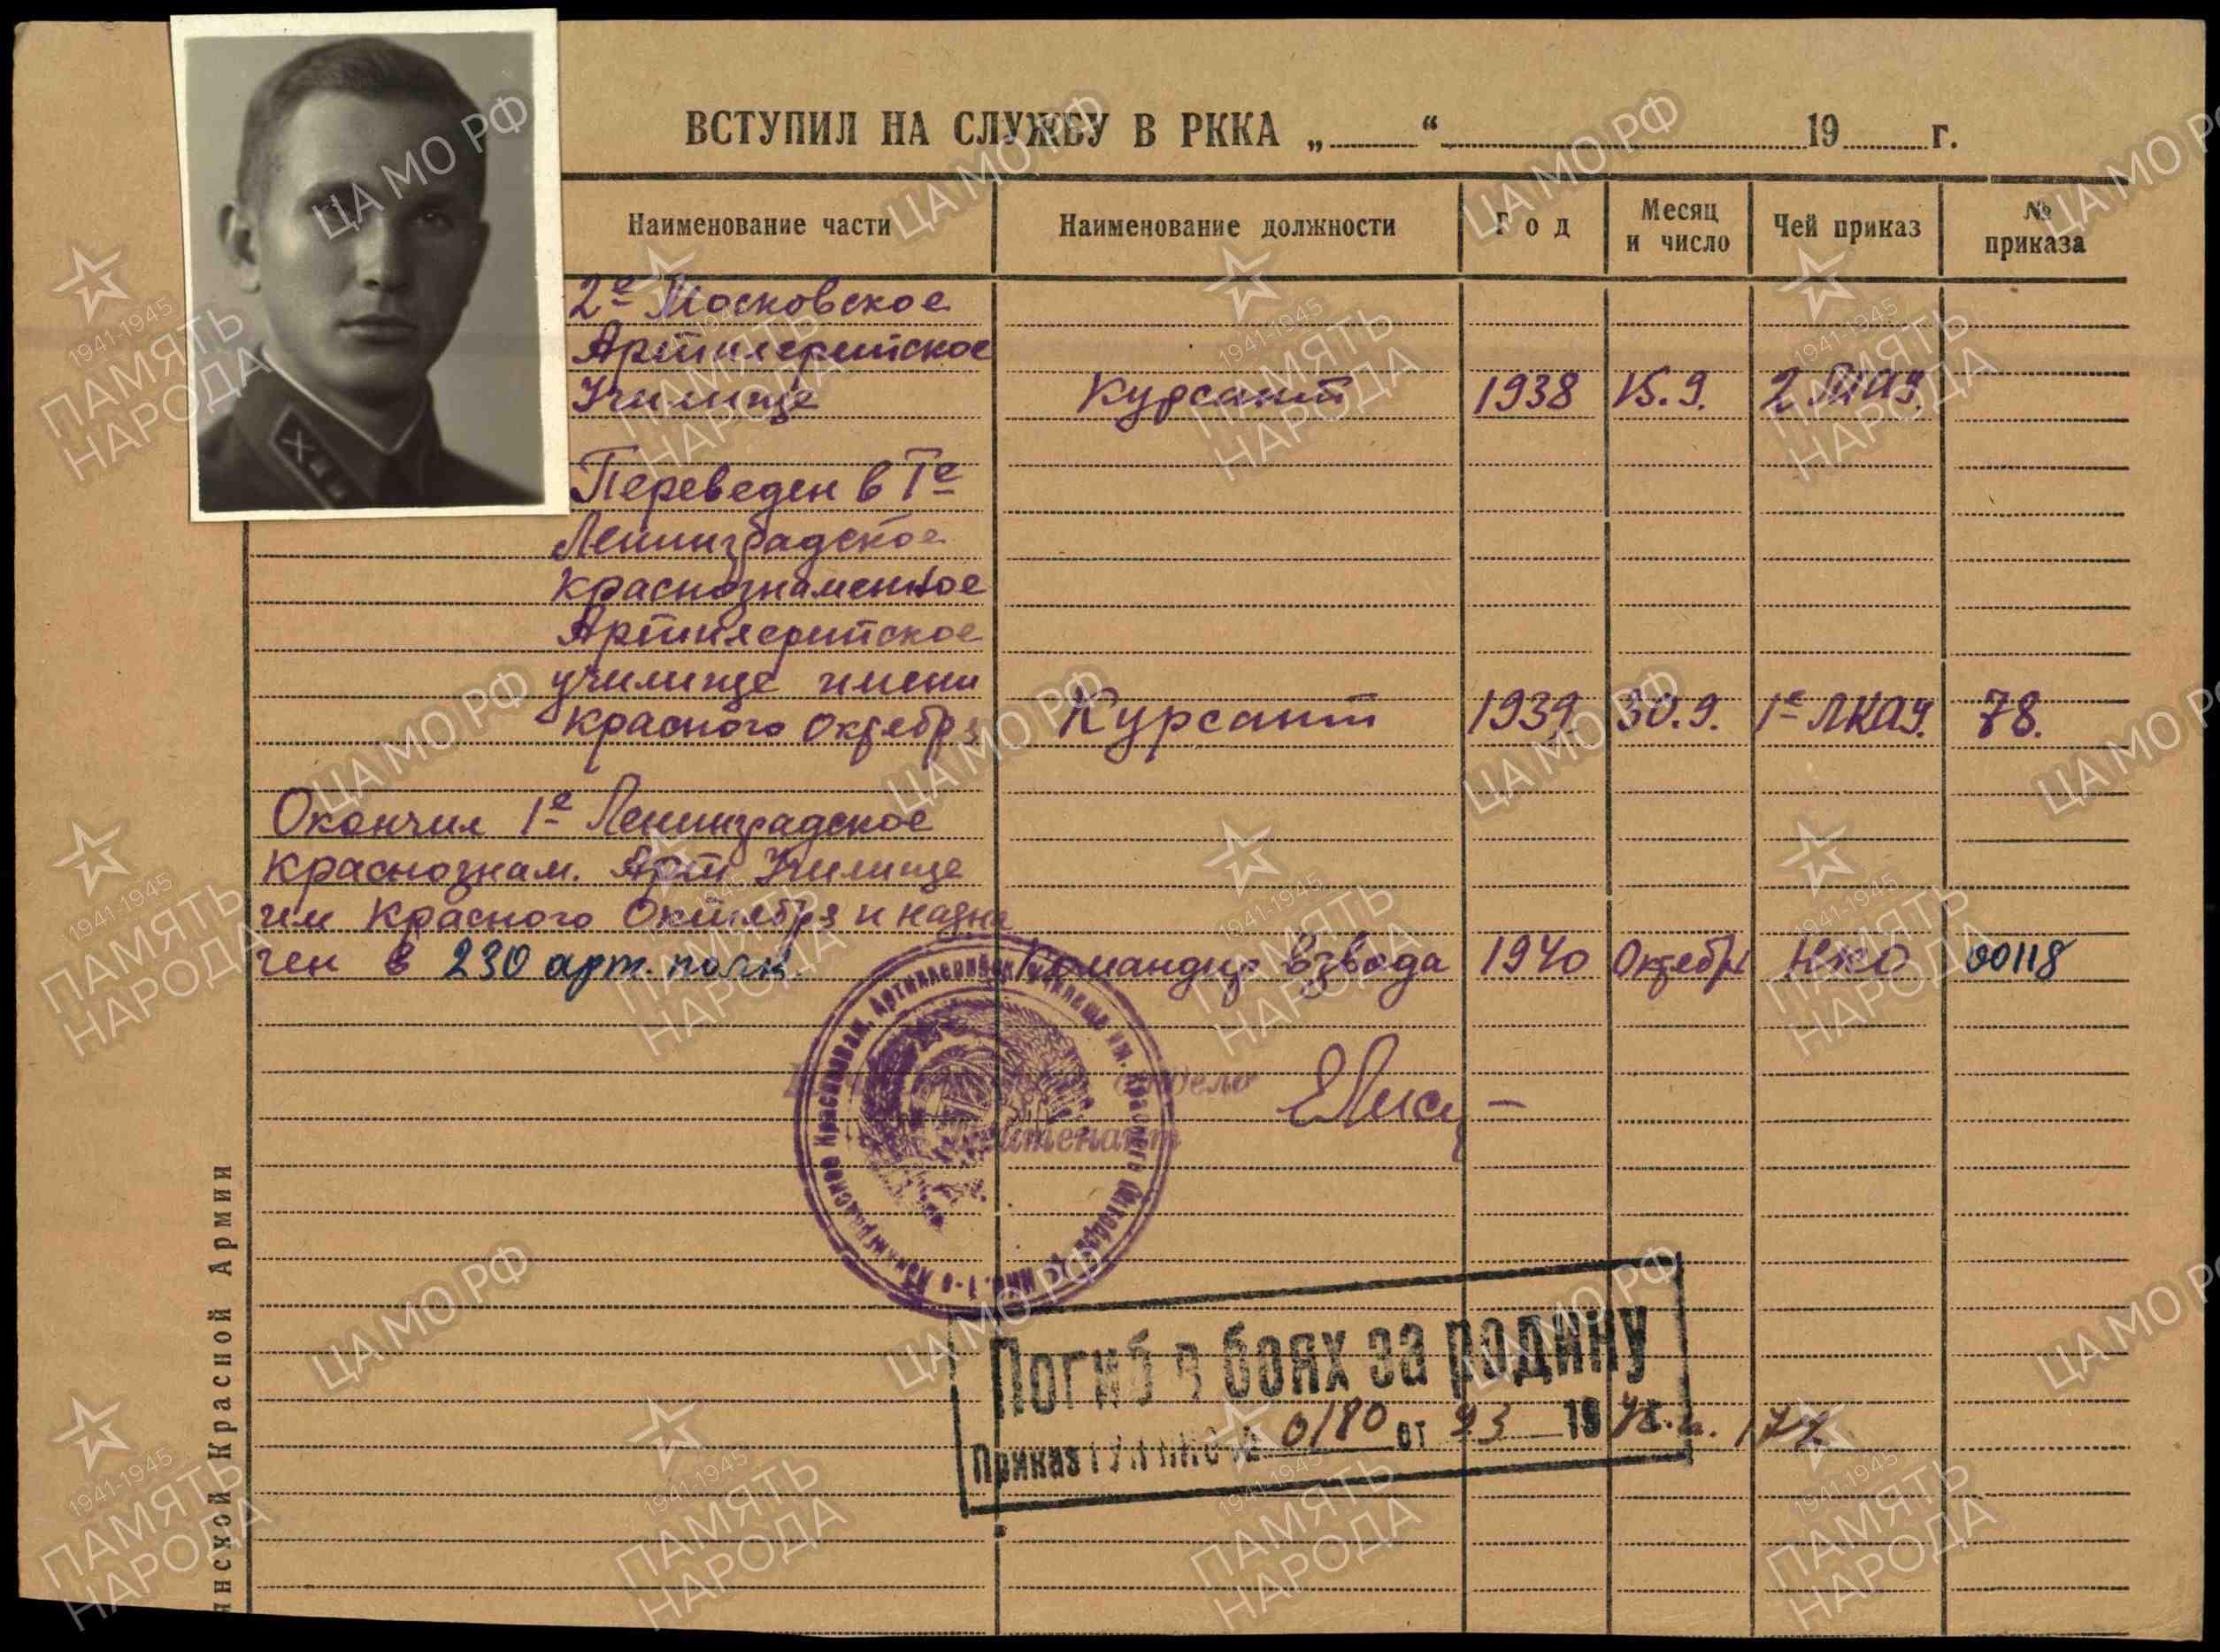 ВСТУПИЛ НА СЛУЖБУ В РККА „ “ 19 г.
Наименование части Наименование должности Год Месяц и число Чей приказ № приказа
2е Московское
Артилерийское
Училище Курсант 1938 15.9. 2 МАУ.
Переведен в 1е
Ленинградское
Краснознаменное
Артилерийское
училище имени
Красного Октебря Курсант 1939 30.9. 1е ЛКАУ. 78.
Окончил 1е Ленинградское
Краснознам. Арт Училище
им Красного Октебря и назна
чен в 230 арт. полк. Командир взвода 1940 Октебрь НКО 00118
отдело
лейтенант
Погиб в боях за родину
Приказ 0180 от 23 19
нской Красной Армии
ЦА МО РФ
1941-1945
ПАМЯТЬ
НАРОДА